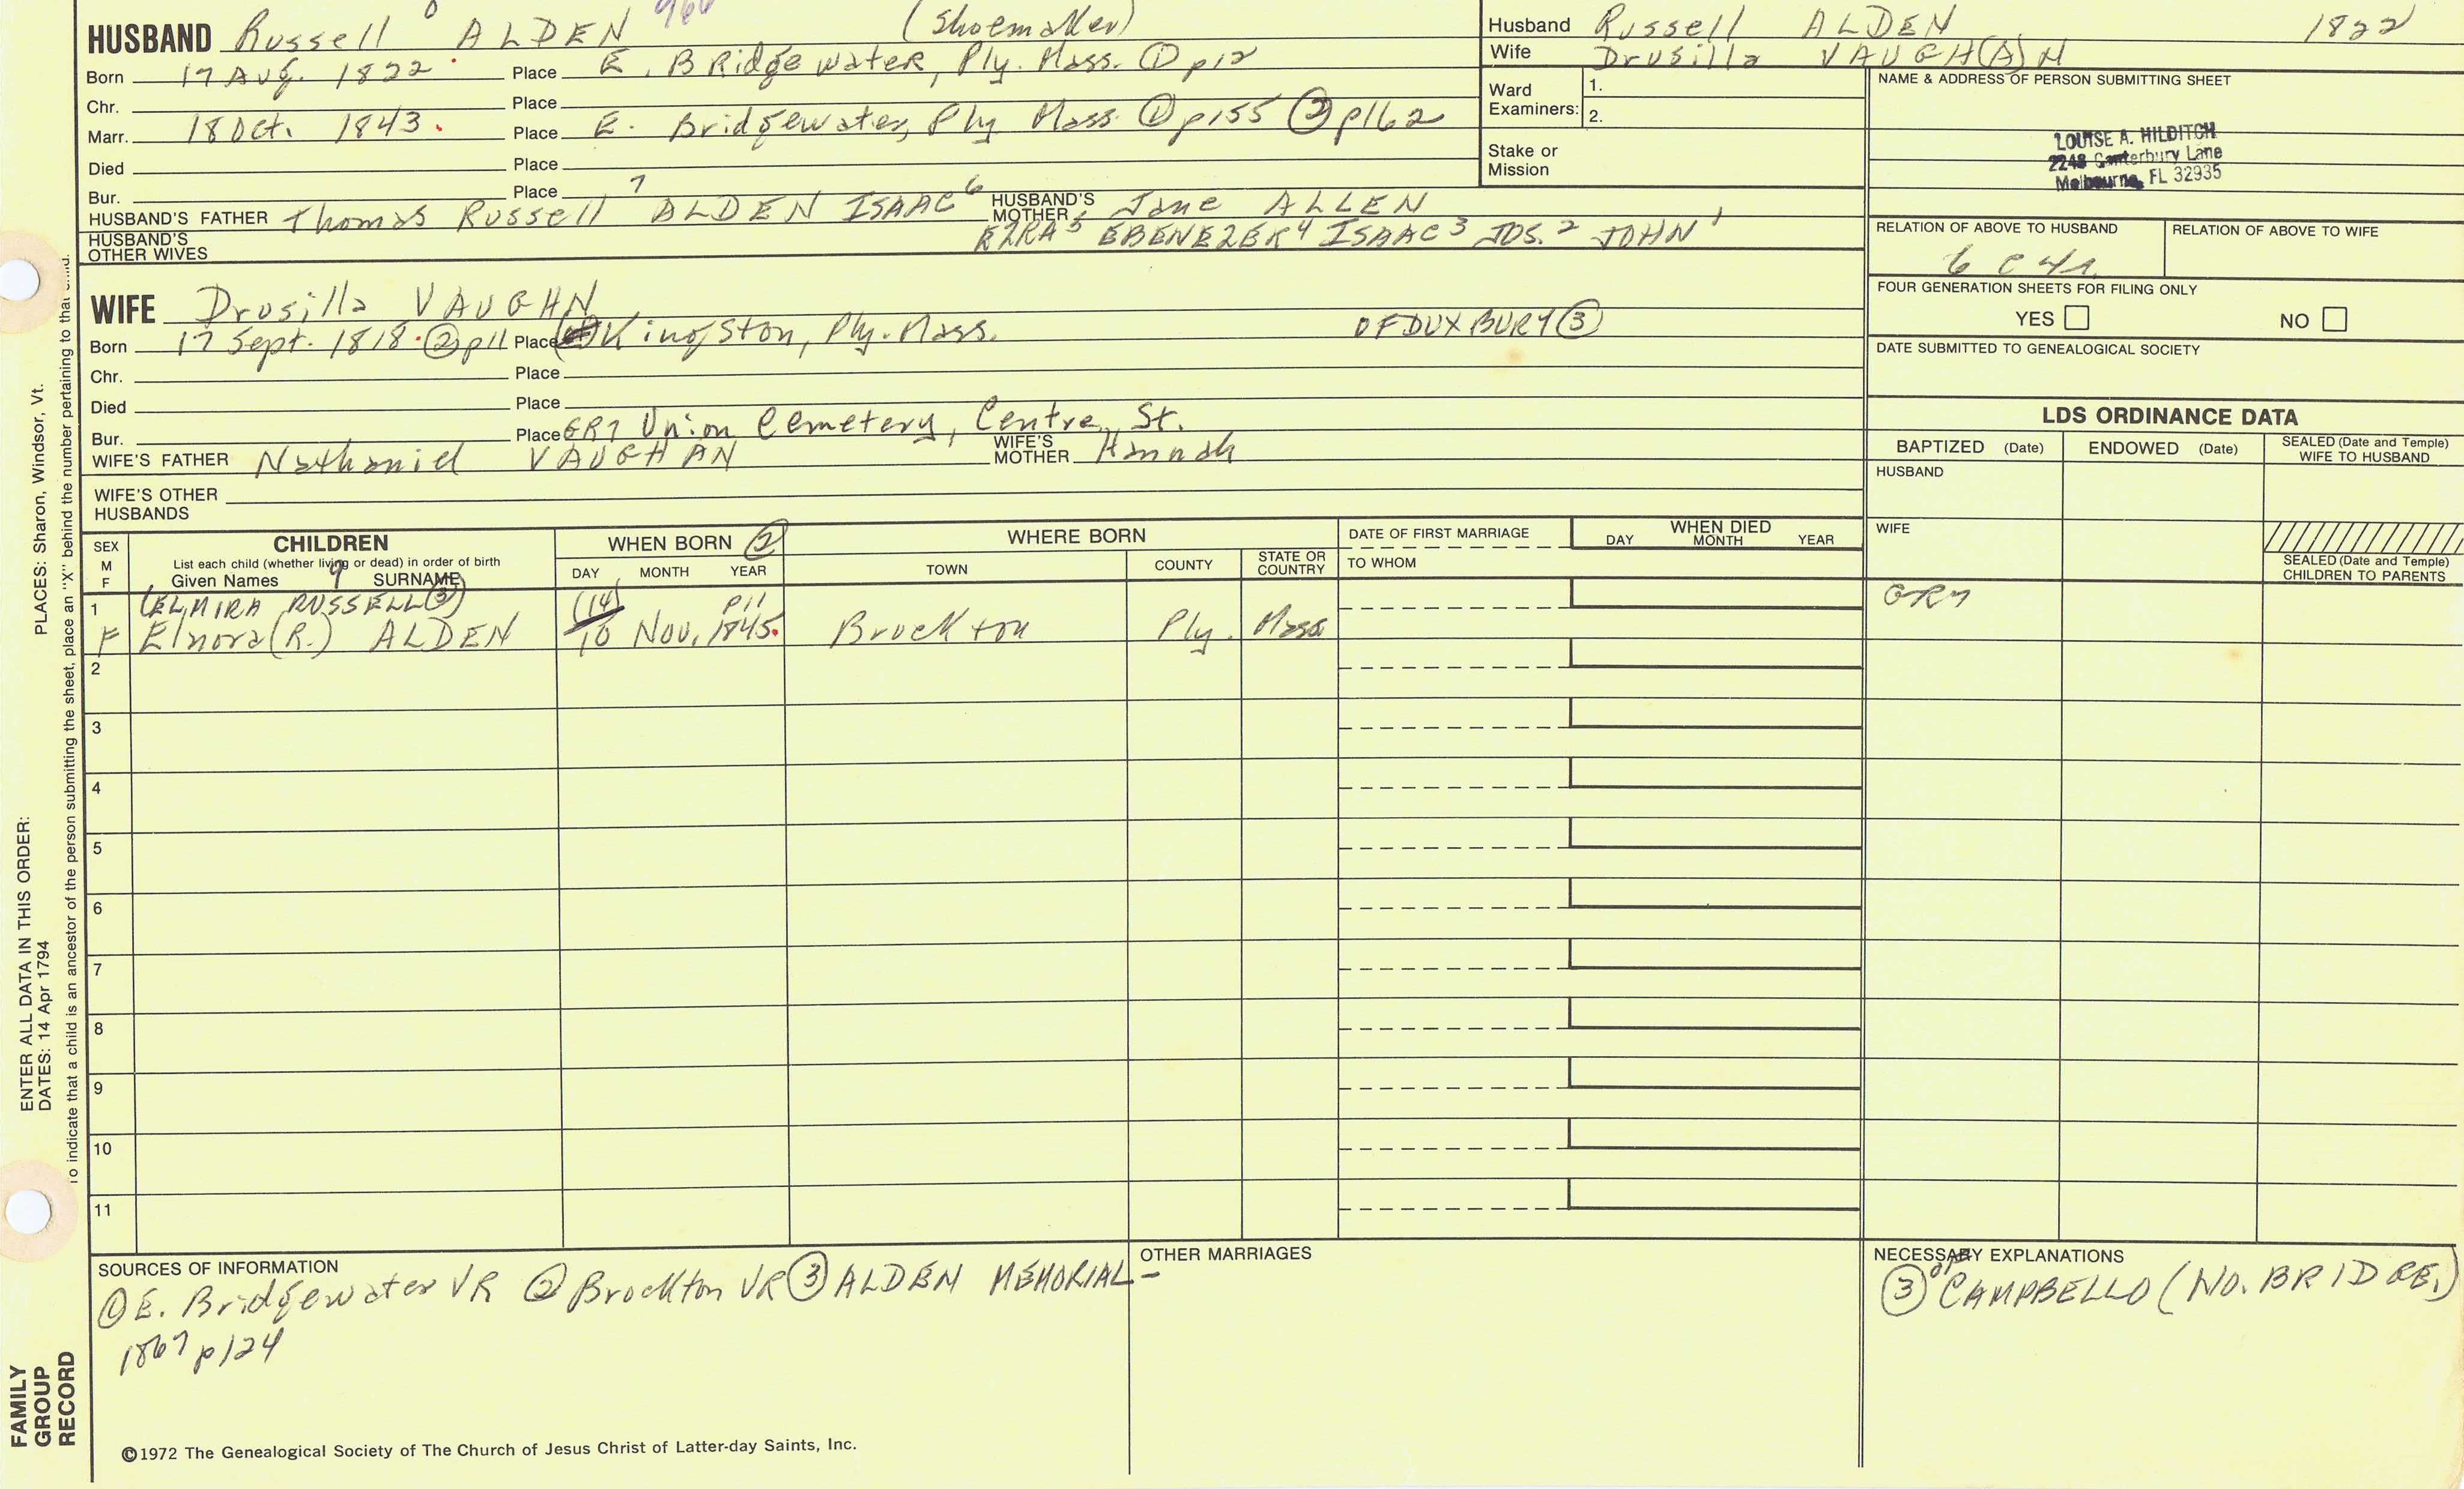 HUSBAND Russell ALDEN 966 (Shoemaker)
Born 17 Aug. 1822 Place E. Bridgewater, Ply. Mass. ① p12
Chr. Place
Marr. 18 Oct. 1843. Place E. Bridgewater, Ply Mass. ① p155 ② p162
Died Place
Bur. Place
HUSBAND'S FATHER Thomas Russell 7 ALDEN ISAAC 6 HUSBAND'S MOTHER Jane ALLEN
HUSBAND'S OTHER WIVES EZRA 5 EBENEZER 4 ISAAC 3 JOS. 2 JOHN 1
Husband Russell ALDEN 1822
Wife Drusilla VAUGH(A)N
Ward Examiners: 1.
2.
Stake or Mission
NAME & ADDRESS OF PERSON SUBMITTING SHEET
LOUISE A. HILDITCH
2248 Canterbury Lane
Melbourne, FL 32935
RELATION OF ABOVE TO HUSBAND RELATION OF ABOVE TO WIFE
6 C 4 r.
FOUR GENERATION SHEETS FOR FILING ONLY
YES NO
DATE SUBMITTED TO GENEALOGICAL SOCIETY
WIFE Drusilla VAUGHN
Born 17 Sept. 1818. ② p11 Place Kingston, Ply. Mass. OF DUXBURY ③
Chr. Place
Died Place
Bur. Place GR7 Union Cemetery, Centre St.
WIFE'S FATHER Nathaniel VAUGHAN WIFE'S MOTHER Hannah
WIFE'S OTHER HUSBANDS
LDS ORDINANCE DATA
BAPTIZED (Date) ENDOWED (Date) SEALED (Date and Temple) WIFE TO HUSBAND
HUSBAND
WIFE
SEALED (Date and Temple) CHILDREN TO PARENTS
SEX M F CHILDREN WHEN BORN ② WHERE BORN DATE OF FIRST MARRIAGE WHEN DIED
List each child (whether living or dead) in order of birth
Given Names 9 SURNAME DAY MONTH YEAR TOWN COUNTY STATE OR COUNTRY TO WHOM DAY MONTH YEAR
1 (ELMIRA RUSSELL ③) (14) p11 GR7
F Elnora (R.) ALDEN 10 Nov. 1845. Brockton Ply. Mass
2
3
4
5
6
7
8
9
10
11
SOURCES OF INFORMATION
① E. Bridgewater VR ② Brockton VR ③ ALDEN MEMORIAL -
1867 p124
OTHER MARRIAGES
NECESSARY EXPLANATIONS
③ of CAMPBELLO (NO. BRIDGE.)
©1972 The Genealogical Society of The Church of Jesus Christ of Latter-day Saints, Inc.
PLACES: Sharon, Windsor, Vt.
ENTER ALL DATA IN THIS ORDER:
DATES: 14 Apr 1794
To indicate that a child is an ancestor of the person submitting the sheet, place an "X" behind the number pertaining to that child.
FAMILY GROUP RECORD